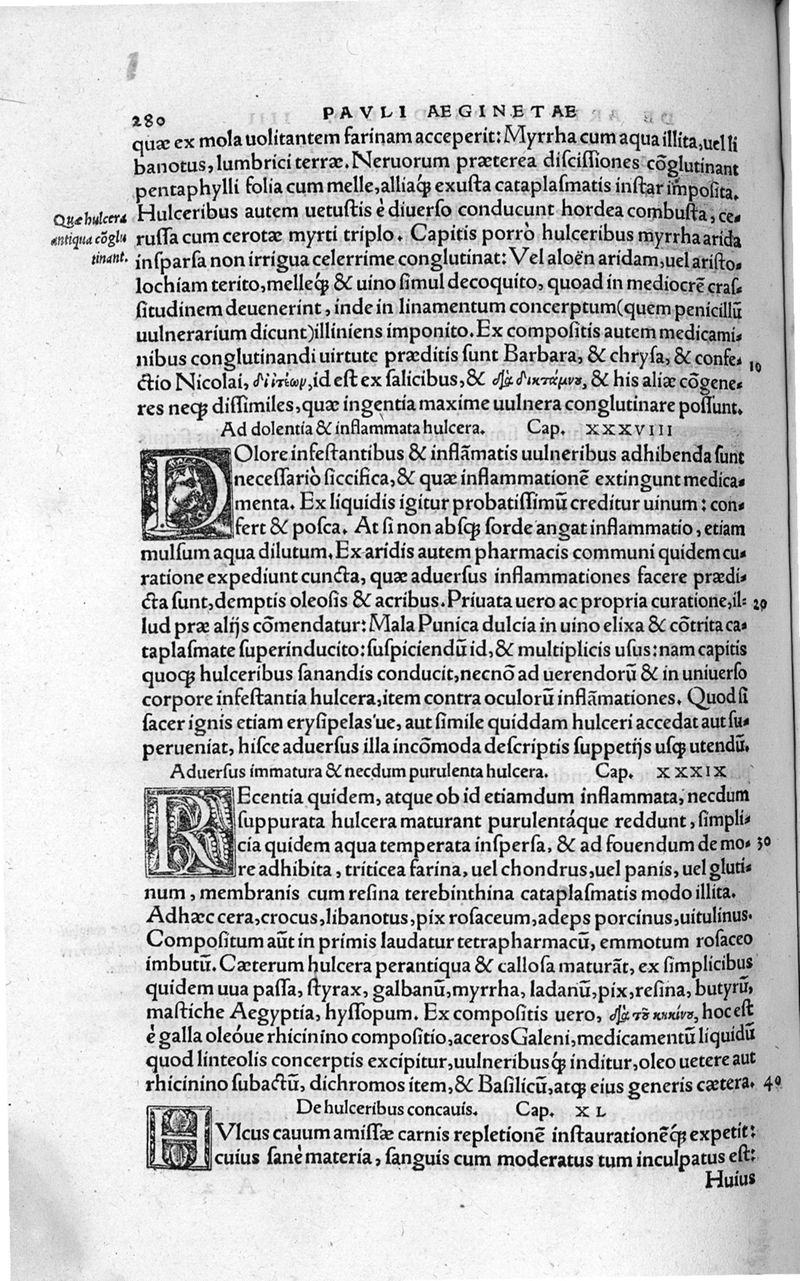 280 PAVLI AEGINETAE
quæ ex mola uolitantem farinam acceperit: Myrrha cum aqua illita, uel li
banotus, lumbrici terræ. Neruorum præterea discissiones cõglutinant
pentaphylli folia cum melle, alliaq́ꝫ exusta cataplasmatis instar imposita.
Quæ hulcera
antiqua cõglu
tinant.
Hulceribus autem uetustis è diuerso conducunt hordea combusta, ce-
russa cum cerotæ myrti triplo. Capitis porrò hulceribus myrrha arida
inspersa non irrigua celerrime conglutinat: Vel aloën aridam, uel aristo-
lochiam terito, melleq́ꝫ & uino simul decoquito, quoad in mediocrẽ cras-
situdinem deuenerint, inde in linamentum concerptum (quem penicillũ
uulnerarium dicunt) illiniens imponito. Ex compositis autem medicami-
nibus conglutinandi uirtute præditis sunt Barbara, & chrysa, & confe- 10
ctio Nicolai, διϊτέων, id est ex salicibus, & διὰ δικτάμνου, & his aliæ cõgene-
res neqꝫ dissimiles, quæ ingentia maxime uulnera conglutinare possunt.
Ad dolentia & inflammata hulcera. Cap. XXXVIII
DOlore infestantibus & inflãmatis uulneribus adhibenda sunt
necessariò siccifica, & quæ inflammationẽ extingunt medica-
menta. Ex liquidis igitur probatissimũ creditur uinum: con-
fert & posca. At si non absqꝫ sorde angat inflammatio, etiam
mulsum aqua dilutum. Ex aridis autem pharmacis communi quidem cu-
ratione expediunt cuncta, quæ aduersus inflammationes facere prædi-
cta sunt, demptis oleosis & acribus. Priuata uero ac propria curatione, il- 20
lud præ alijs cõmendatur: Mala Punica dulcia in uino elixa & cõtrita ca-
taplasmate superinducito: suspiciendũ id, & multiplicis usus: nam capitis
quoqꝫ hulceribus sanandis conducit, necnõ ad uerendorũ & in uniuerso
corpore infestantia hulcera, item contra oculorũ inflãmationes. Quod si
sacer ignis etiam erysipelas'ue, aut simile quiddam hulceri accedat aut su-
perueniat, hisce aduersus illa incõmoda descriptis suppetijs usqꝫ utendũ.
Aduersus immatura & necdum purulenta hulcera. Cap. XXXIX
REcentia quidem, atque ob id etiamdum inflammata, necdum
suppurata hulcera maturant purulentáque reddunt, simpli-
cia quidem aqua temperata inspersa, & ad fouendum de mo- 30
re adhibita, triticea farina, uel chondrus, uel panis, uel gluti-
num, membranis cum resina terebinthina cataplasmatis modo illita.
Adhæc cera, crocus, libanotus, pix rosaceum, adeps porcinus, uitulinus.
Compositum aũt in primis laudatur tetrapharmacũ, emmotum rosaceo
imbutũ. Cæterum hulcera perantiqua & callosa maturãt, ex simplicibus
quidem uua passa, styrax, galbanũ, myrrha, ladanũ, pix, resina, butyrũ,
mastiche Aegyptia, hyssopum. Ex compositis uero, διὰ τοῦ κηκίνου, hoc est
è galla oleóue rhicinino compositio, aceros Galeni, medicamentũ liquidũ
quod linteolis concerptis excipitur, uulneribusq́ꝫ inditur, oleo uetere aut
rhicinino subactũ, dichromos item, & Basilicũ, atqꝫ eius generis cætera. 40
De hulceribus concauis. Cap. XL
HVlcus cauum amissæ carnis repletionẽ instaurationẽq́ꝫ expetit:
cuius sanè materia, sanguis cum moderatus tum inculpatus est:
Huius